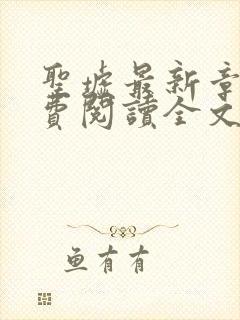 聖墟最新章
費閱讀全文
鱼有有